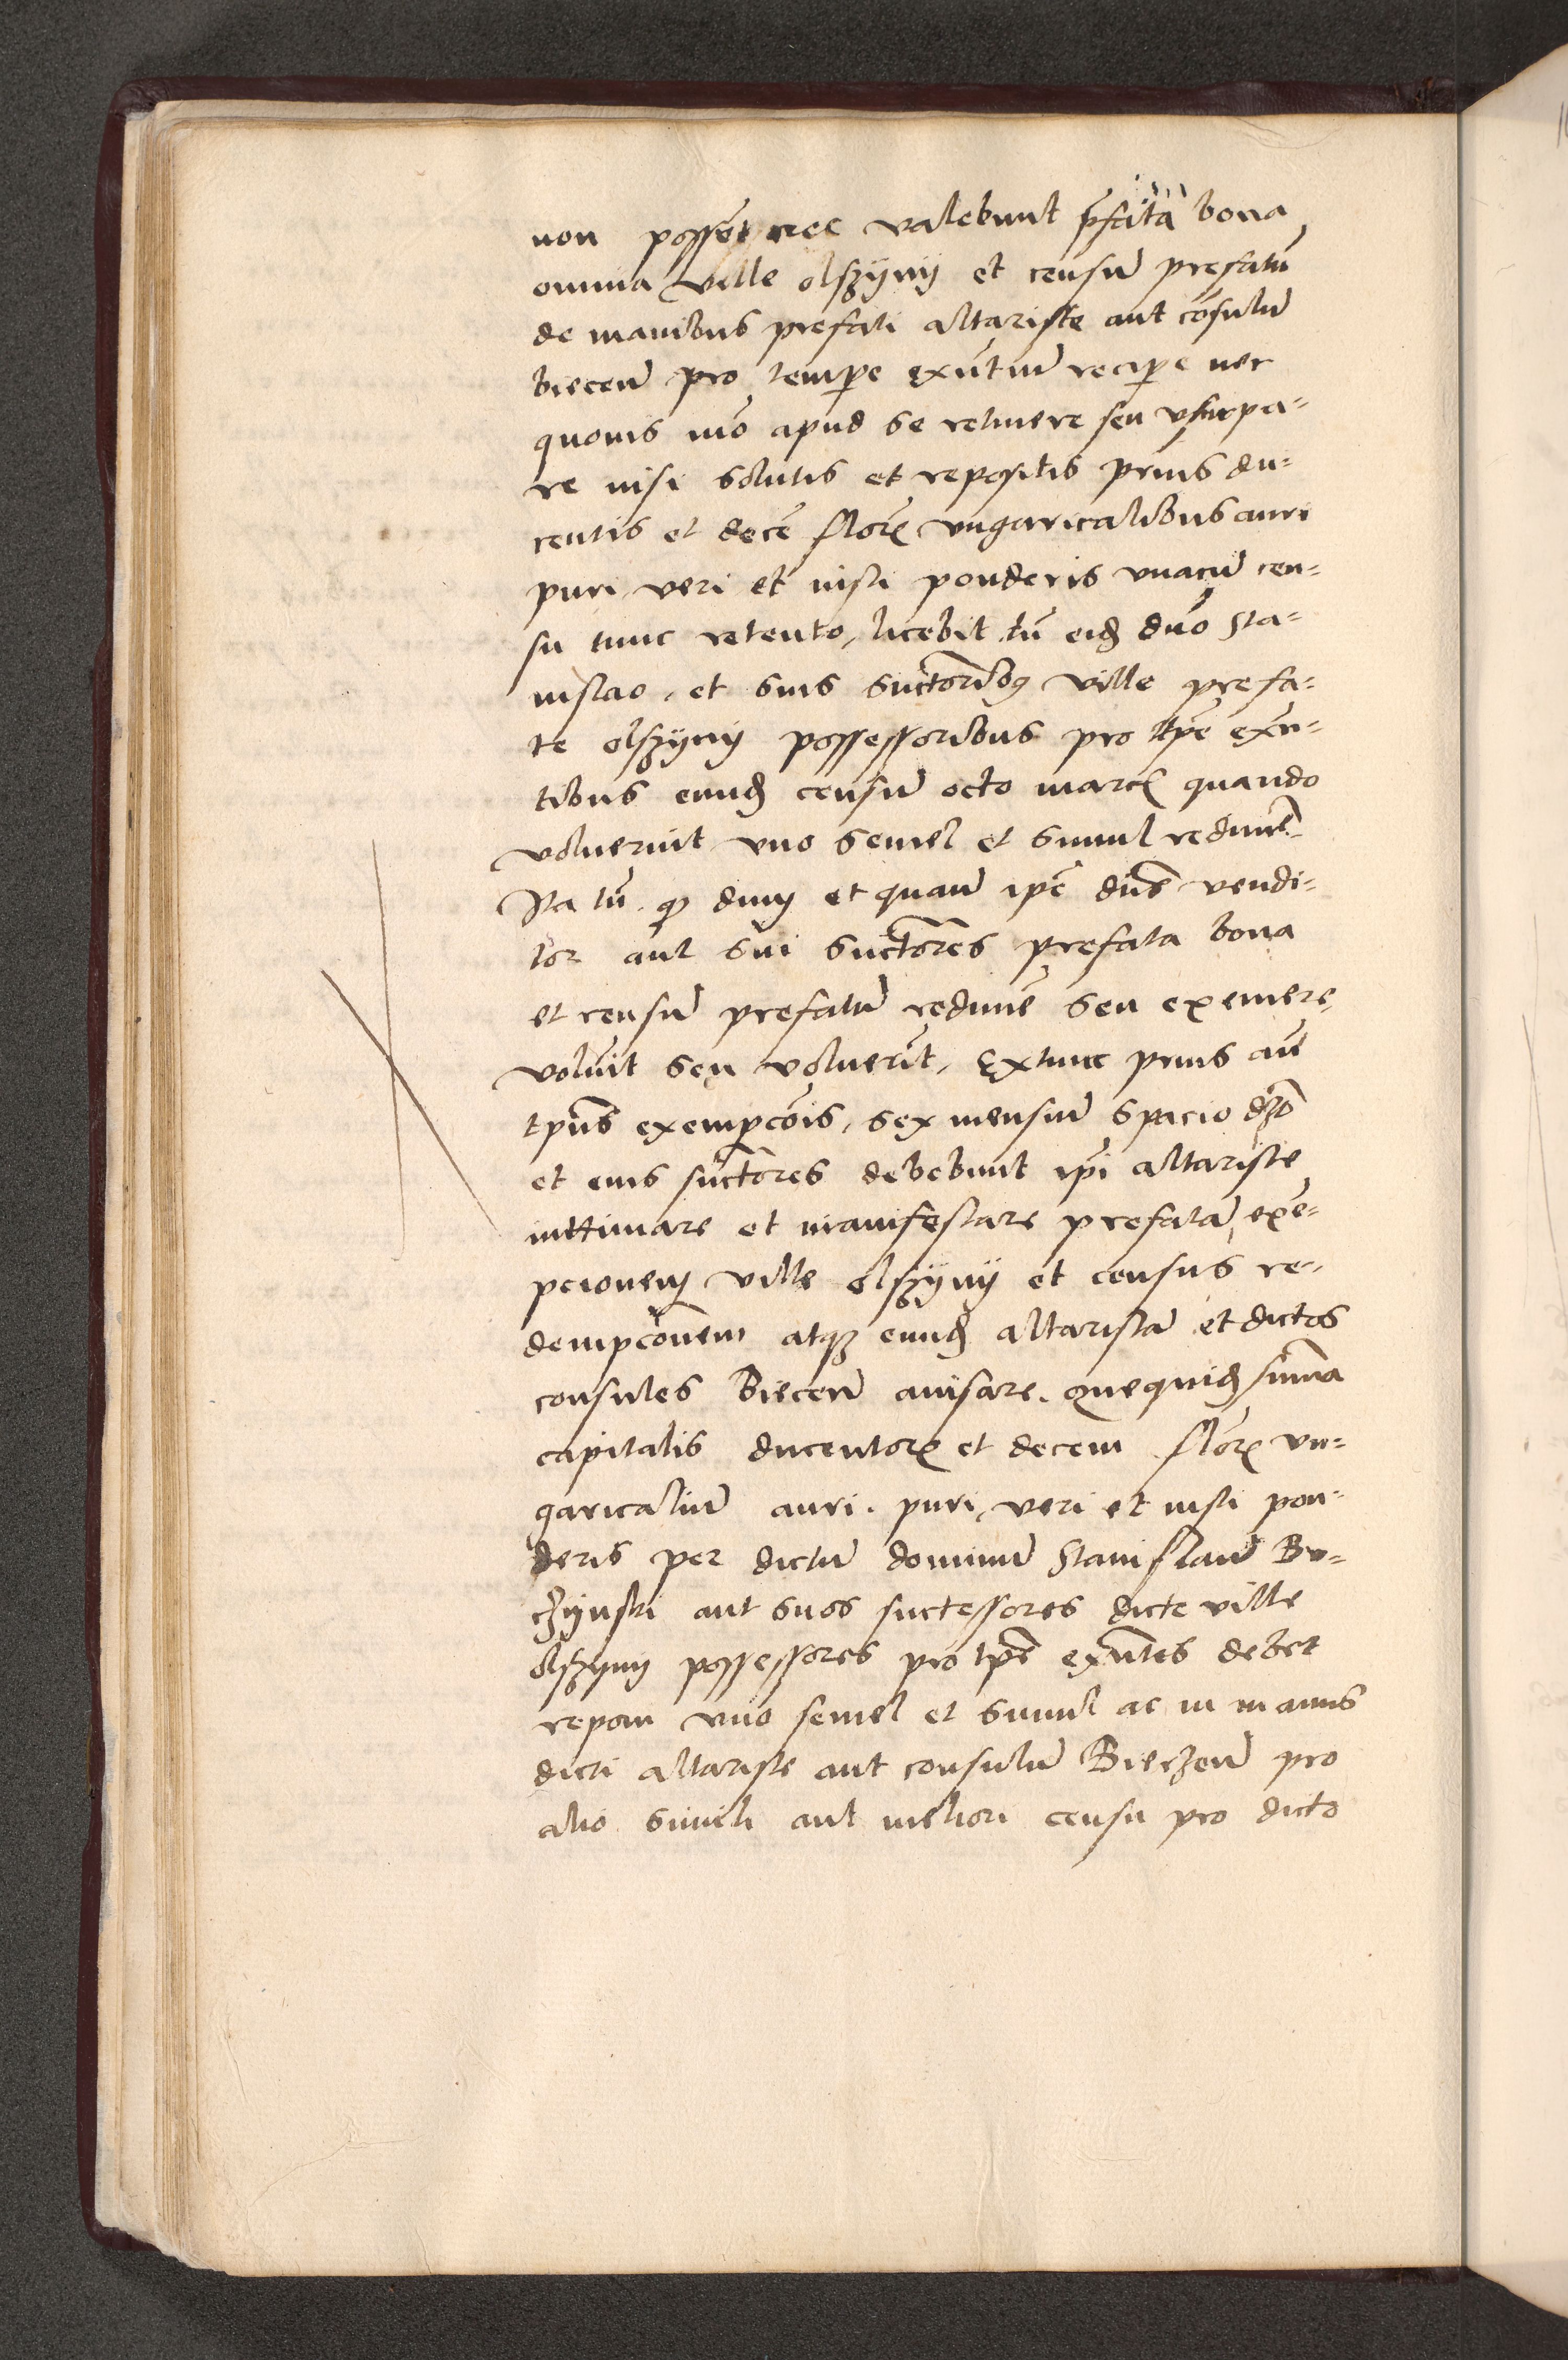 non possēt nec valebunt p̄fata bona
omnia ville olszyny et censū prefatū
de manibus prefati altariste aut cōsulū
biecen̄ pro tempe exn̄tium recipe nec
quovis mō apud se retinere seu vsurpa=
re nisi solutis et repositis prius du=
centis et decē floren̄ ungaricalibus auri
puri veri et iusti ponderis vnacū cen=
su tunc retento, licebit tn̄ eid dn̄o Sta=
nislao, et suis successoribꝫ ville prefa=
te olszyny possessoribus pro tpē exn̄=
tibus eund censū octo marc quando
voluerint vno semel et simul redimē̄
Ita tn̄ qꝫ dum et quan̄ ipē dn̄s vendi=
tor aut sui suctores prefata bona
et censū prefatū redimē seu exemere
volūit seu voluerīt, Extunc prius an̄
tpūs exempcōis, sex mensiū spacio
et eius suctores debebunt ipī altariste
inttimare et manifestare prefatā exē=
pcionem ville olszyny et census re=
dempcōnem atqꝫ eund altaristā et dictos
consules Biecen̄ avisare. Quequid sum̄a
capitalis ducentorꝫ et decem florꝫ vn=
garicaliū auri. puri, veri et iusti pon=
deris per dictū dominū Stanislaū Bu=
czynski aut suos suctessores dicte ville
olszyny possessores pro tpē exn̄tes debet
reponi vno semel et simul ac in manus
dicti altariste aut consulū Bieczen̄ pro
alio simili aut meliori censu pro dicto